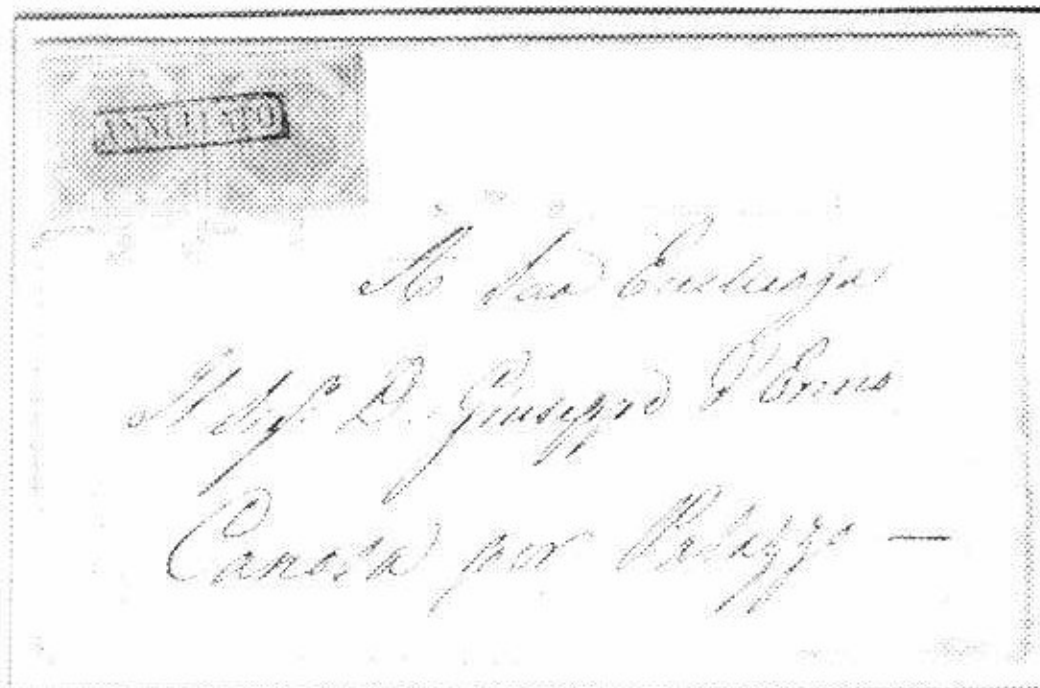 ANNULLATO
A Sua Eccellenza
Il Sig. D. Giuseppe D'Erme
Canosa per Palazzo —